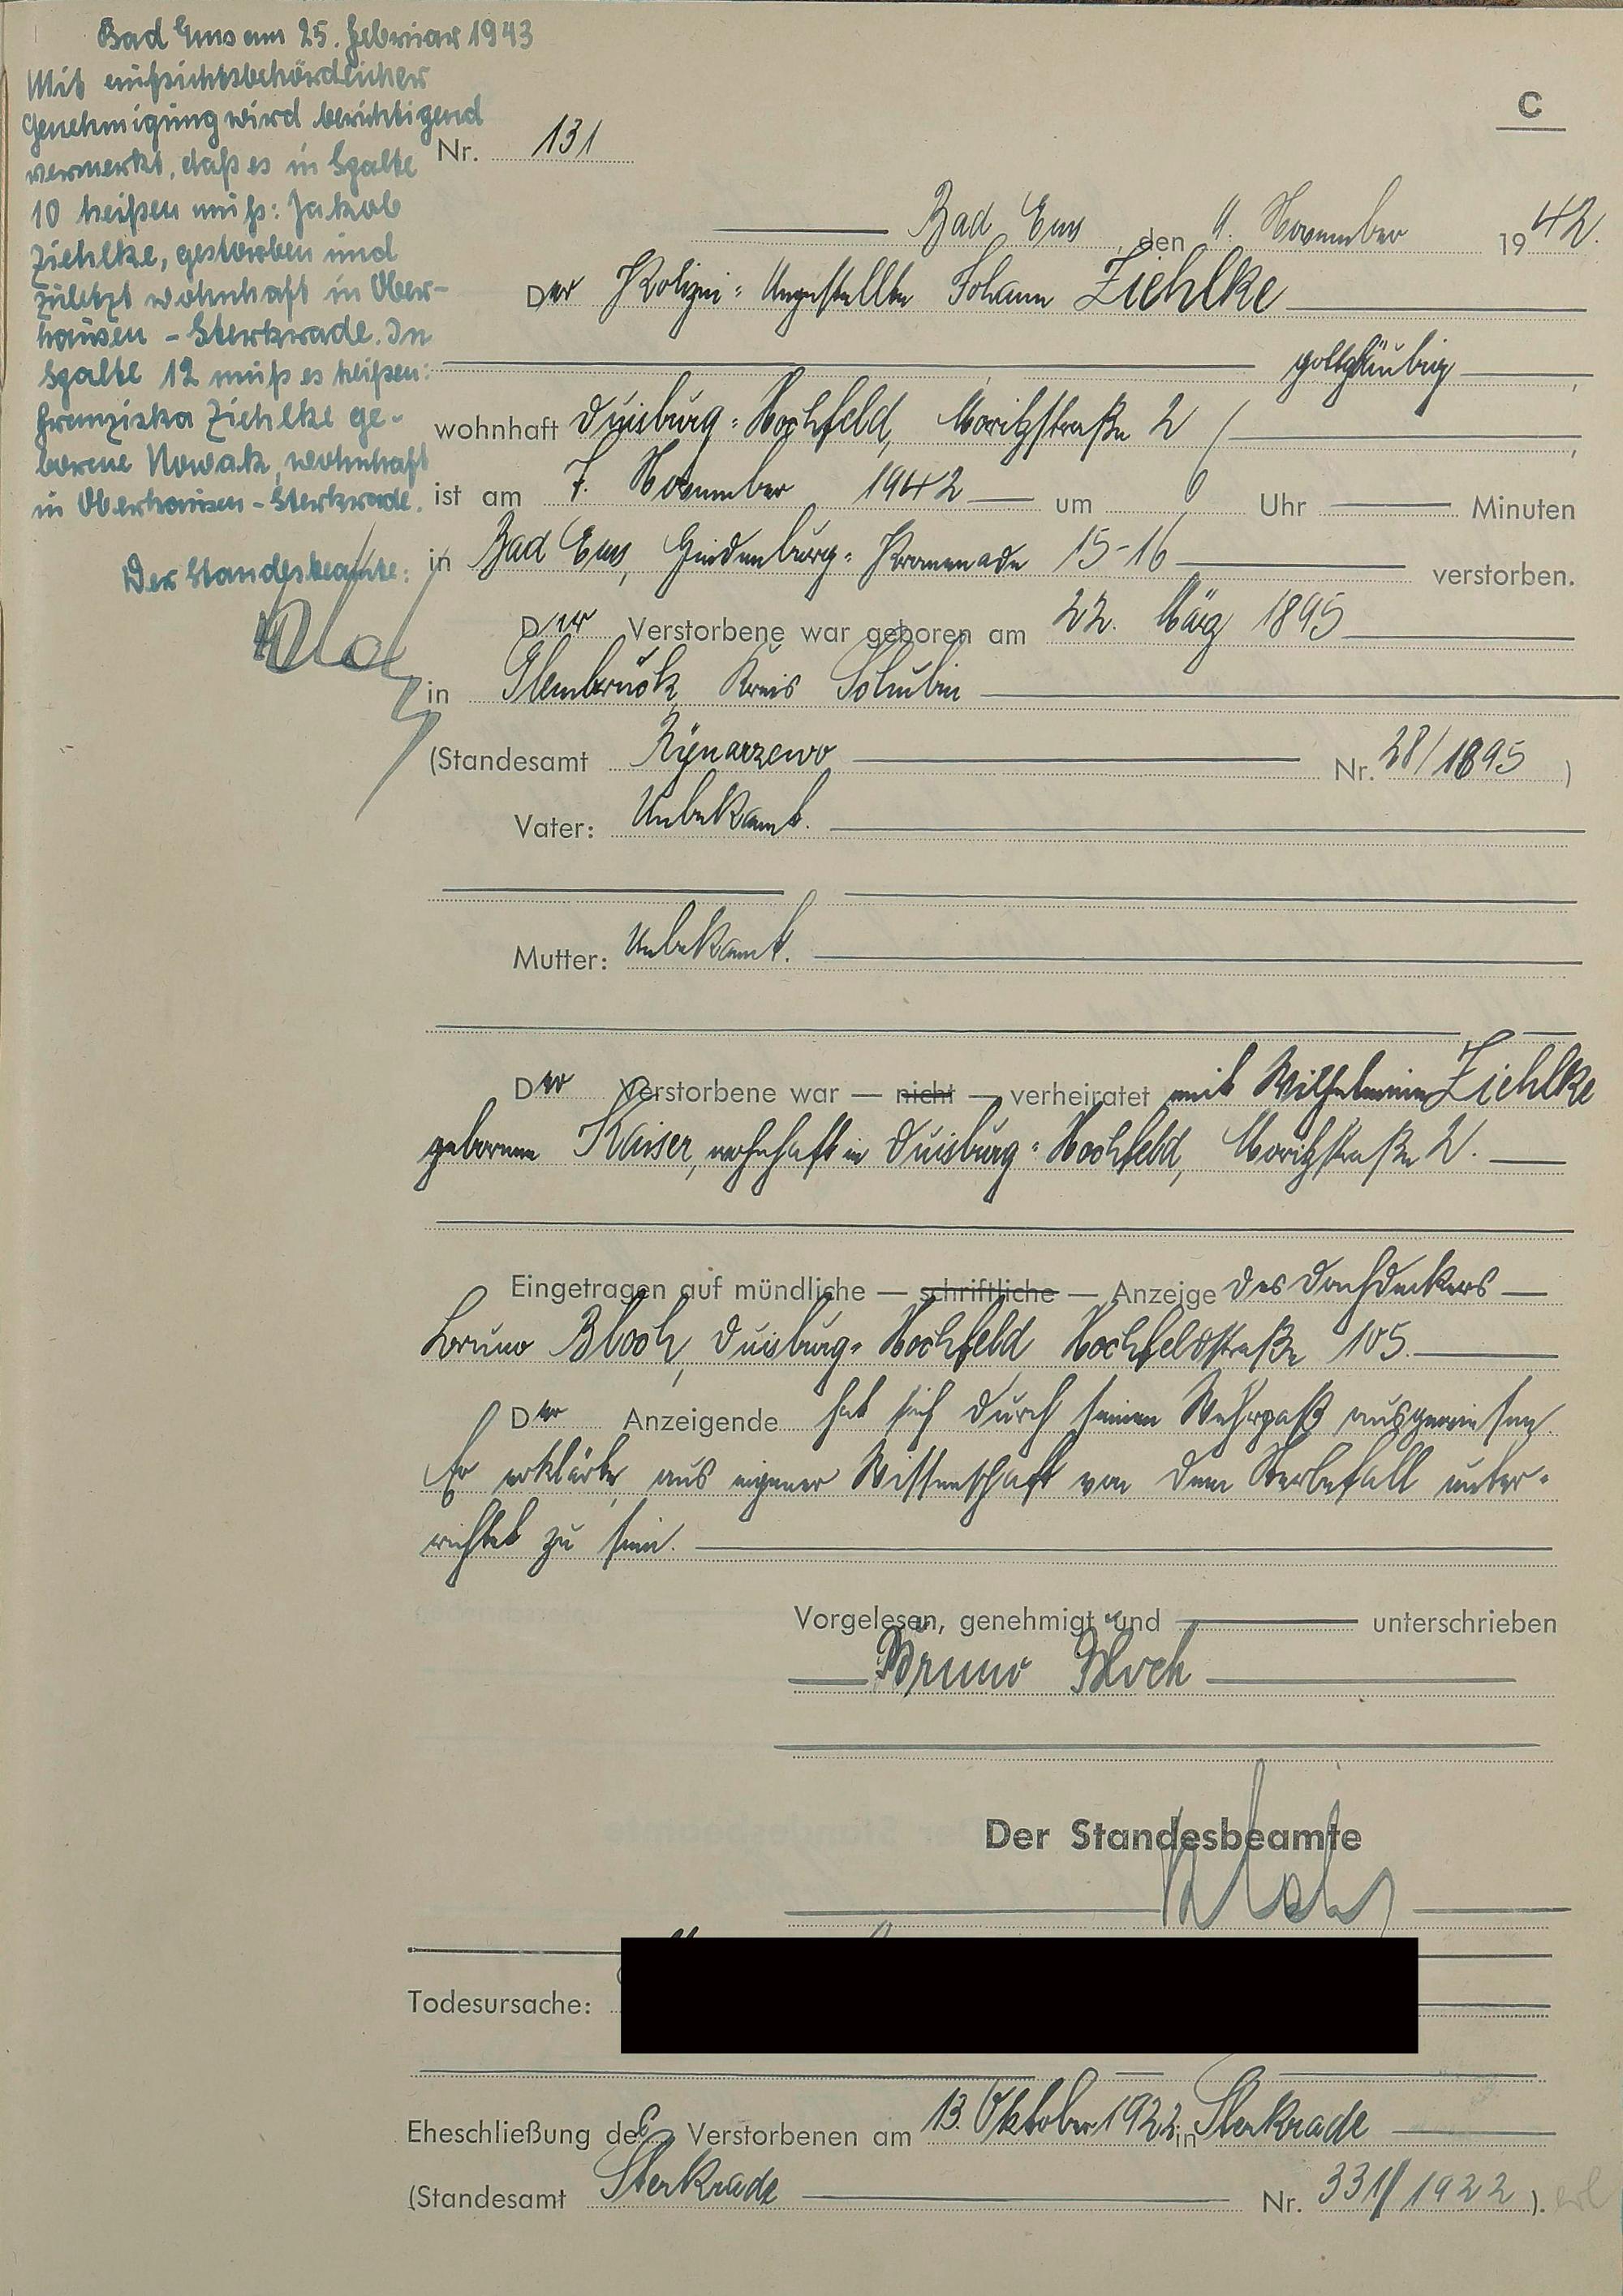 Bad Ems am 25. Februar 1943
Mit aufsichtsbehördlicher
Genehmigung wird berichtigend
vermerkt, daß es in Spalte
10 heißen muß: Jakob
Ziehlke, gestorben und
zuletzt wohnhaft in Ober-
hausen - Sterkrade. In
Spalte 12 muß es heißen:
Franziska Ziehlke ge-
borene Nowak, wohnhaft
in Oberhausen - Sterkrade.
Der Standesbeamte:
C
Nr. 131
Bad Ems, den 9. November 1942.
Der Polizei-Angestellte Johann Ziehlke
gottgläubig
wohnhaft Duisburg-Hochfeld, Moritzstraße 2
ist am 7. November 1942 um Uhr Minuten
in Bad Ems, Hindenburg-Promenade 15-16 verstorben.
Der Verstorbene war geboren am 22. März 1895
in Kreis Schubin
(Standesamt Rynarzewo Nr. 28/1895)
Vater: Unbekannt.
Mutter: Unbekannt.
Der Verstorbene war — nicht — verheiratet mit Wilhelmine Ziehlke
geborene Kaiser, wohnhaft in Duisburg-Hochfeld, Moritzstraße 2.
Eingetragen auf mündliche — schriftliche — Anzeige des Dachdeckers
Bruno Bloch, Duisburg-Hochfeld Hochfeldstraße 105.
Der Anzeigende hat sich durch seinen Wehrpaß ausgewiesen.
Er erklärte, aus eigener Wissenschaft von dem Sterbefall unter-
richtet zu sein.
Vorgelesen, genehmigt und unterschrieben
Bruno Bloch
Der Standesbeamte
Todesursache:
Eheschließung des Verstorbenen am 13. Oktober 1922 in Sterkrade
(Standesamt Sterkrade Nr. 331/1922).